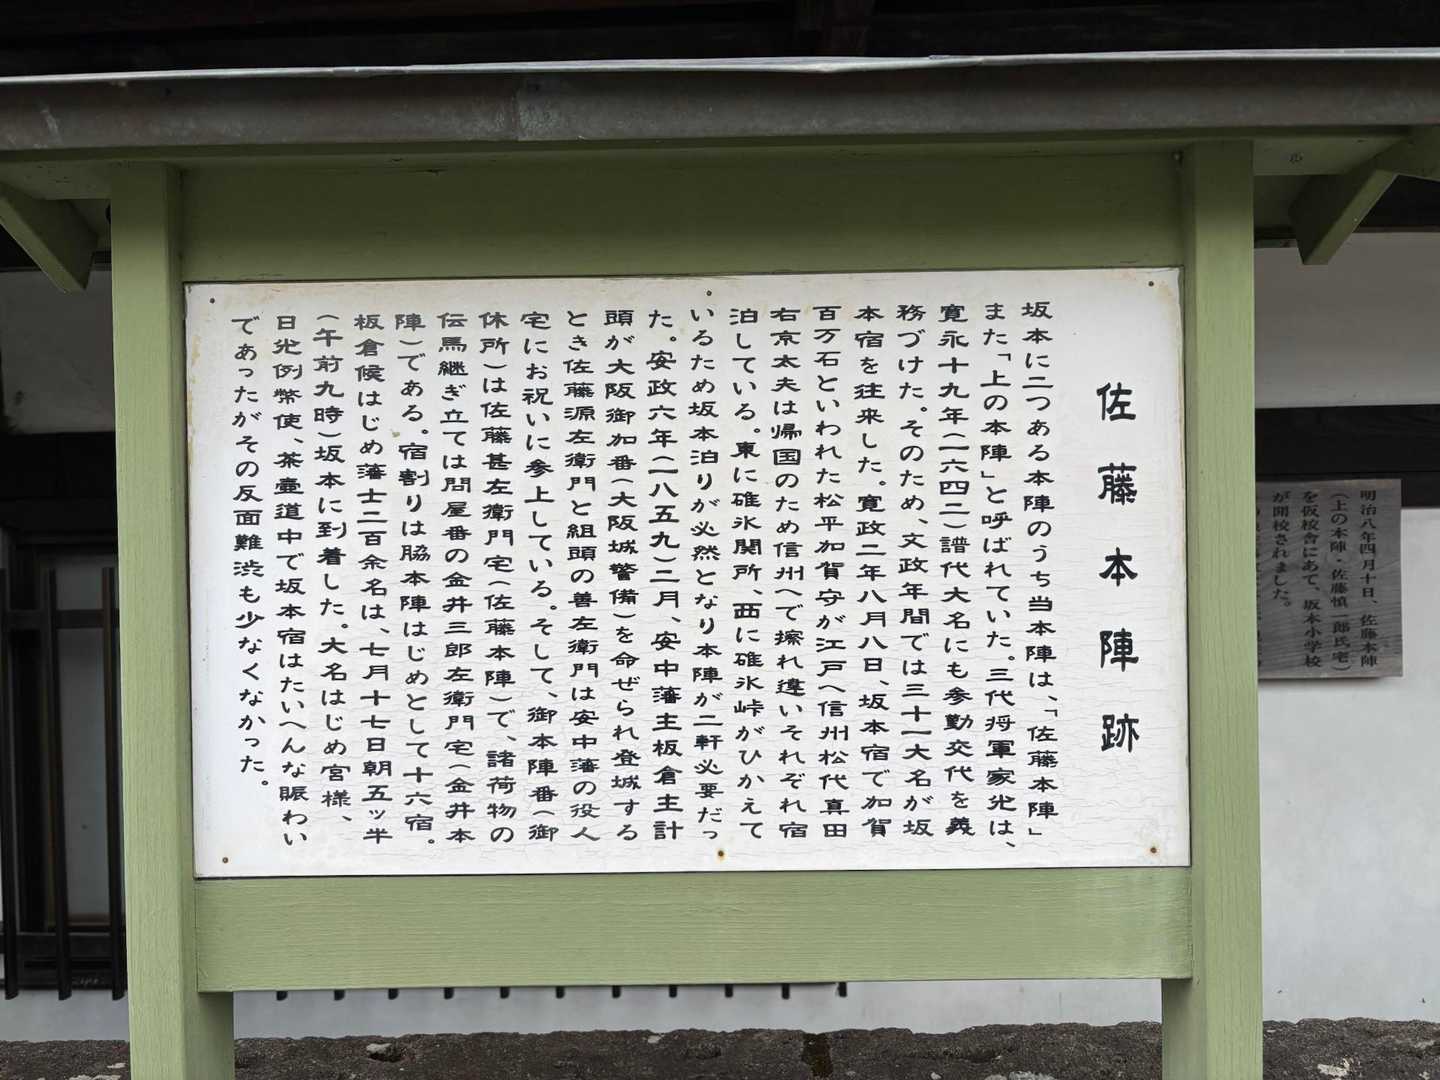 佐藤本陣跡
坂本に二つある本陣のうち当本陣は、「佐藤本陣」
また「上の本陣」と呼ばれていた。三代将軍家光は、
寛永十九年(一六四二)譜代大名にも参勤交代を義
務づけた。そのため、文政年間では三十一大名が坂
本宿を往来した。寛政二年八月八日、坂本宿で加賀
百万石といわれた松平加賀守が江戸へ信州松代真田
右京太夫は帰国のため信州へで擦れ違いそれぞれ宿
泊している。東に碓氷関所、西に碓氷峠がひかえて
いるため坂本泊りが必然となり本陣が二軒必要だっ
た。安政六年(一八五九)二月、安中藩主板倉主計
頭が大阪御加番(大阪城警備)を命ぜられ登城する
とき佐藤源左衛門と組頭の善左衛門は安中藩の役人
宅にお祝いに参上している。そして、御本陣番(御
休所)は佐藤甚左衛門宅(佐藤本陣)で、諸荷物の
伝馬継ぎ立ては問屋番の金井三郎左衛門宅(金井本
陣)である。宿割りは脇本陣はじめとして十六宿。
板倉候はじめ藩士二百余名は、七月十七日朝五ッ半
(午前九時)坂本に到着した。大名はじめ宮様、
日光例幣使、茶壷道中で坂本宿はたいへんな賑わい
であったがその反面難渋も少なくなかった。
明治八年四月十日、佐藤本陣
(上の本陣・佐藤慎一郎氏宅)
を仮校舎にあて、坂本小学校
が開校されました。